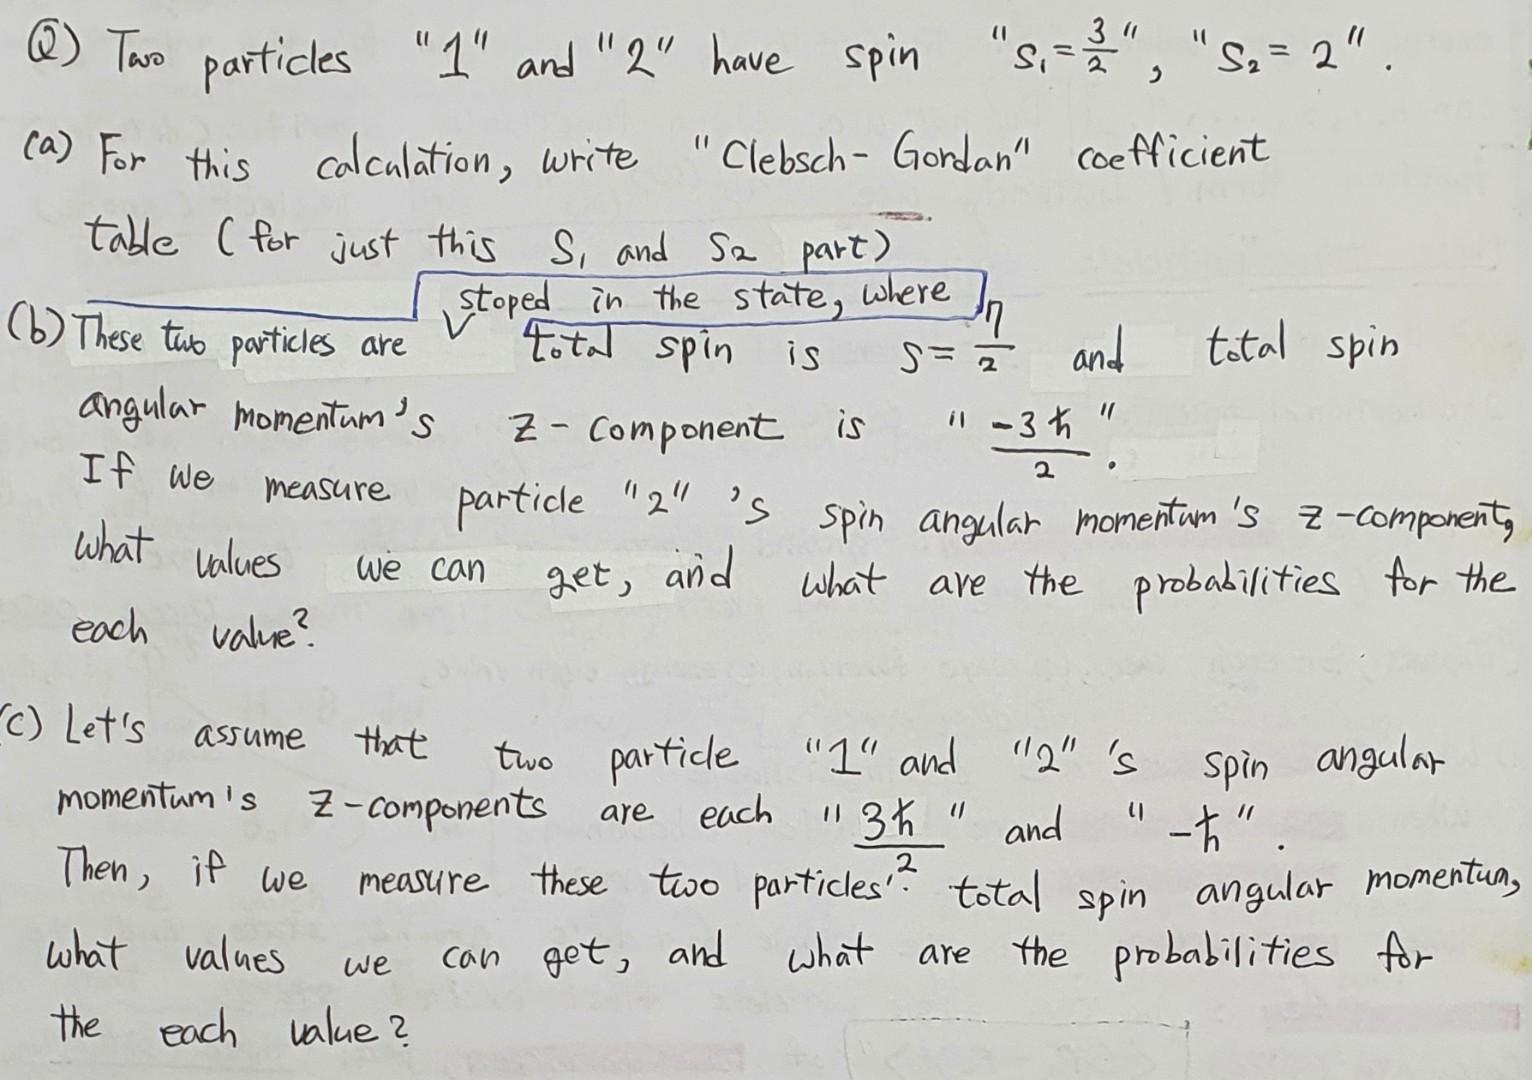 Q) Two particles "1" and "2" have spin "S₁ = 3/2", "S₂ = 2".
(a) For this calculation, write "Clebsch-Gordan" coefficient
table (for just this S₁ and S₂ part)
stoped in the state, where
(b) These two particles are ✓ total spin is s = 7/2 and total spin
angular momentum's z-component is "-3ħ/2".
If we measure particle "2" 's spin angular momentum's z-component,
what values we can get, and what are the probabilities for the
each value?
(C) Let's assume that two particle "1" and "2" 's spin angular
momentum's z-components are each "3ħ/2" and "-ħ".
Then, if we measure these two particles' total spin angular momentum,
what values we can get, and what are the probabilities for
the each value?